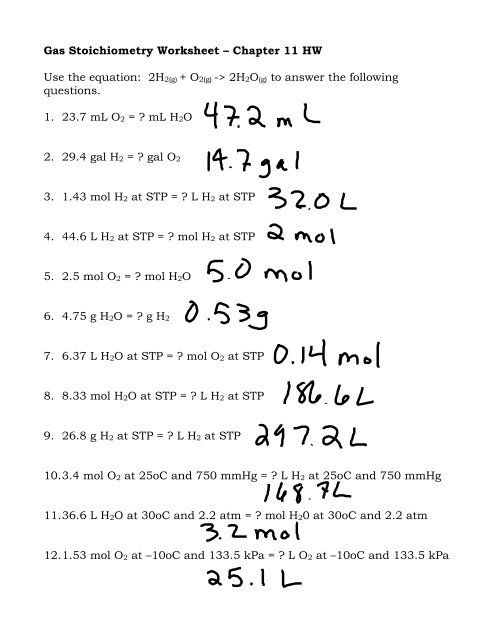 Gas Stoichiometry Worksheet – Chapter 11 HW
Use the equation: 2H2(g) + O2(g) -> 2H2O(g) to answer the following
questions.
1. 23.7 mL O2 = ? mL H2O 47.2 mL
2. 29.4 gal H2 = ? gal O2 14.7 gal
3. 1.43 mol H2 at STP = ? L H2 at STP 32.0 L
4. 44.6 L H2 at STP = ? mol H2 at STP 2 mol
5. 2.5 mol O2 = ? mol H2O 5.0 mol
6. 4.75 g H2O = ? g H2 0.53g
7. 6.37 L H2O at STP = ? mol O2 at STP 0.14 mol
8. 8.33 mol H2O at STP = ? L H2 at STP 186.6L
9. 26.8 g H2 at STP = ? L H2 at STP 297.2L
10.3.4 mol O2 at 25oC and 750 mmHg = ? L H2 at 25oC and 750 mmHg
168.7L
11.36.6 L H2O at 30oC and 2.2 atm = ? mol H20 at 30oC and 2.2 atm
3.2 mol
12.1.53 mol O2 at –10oC and 133.5 kPa = ? L O2 at –10oC and 133.5 kPa
25.1 L